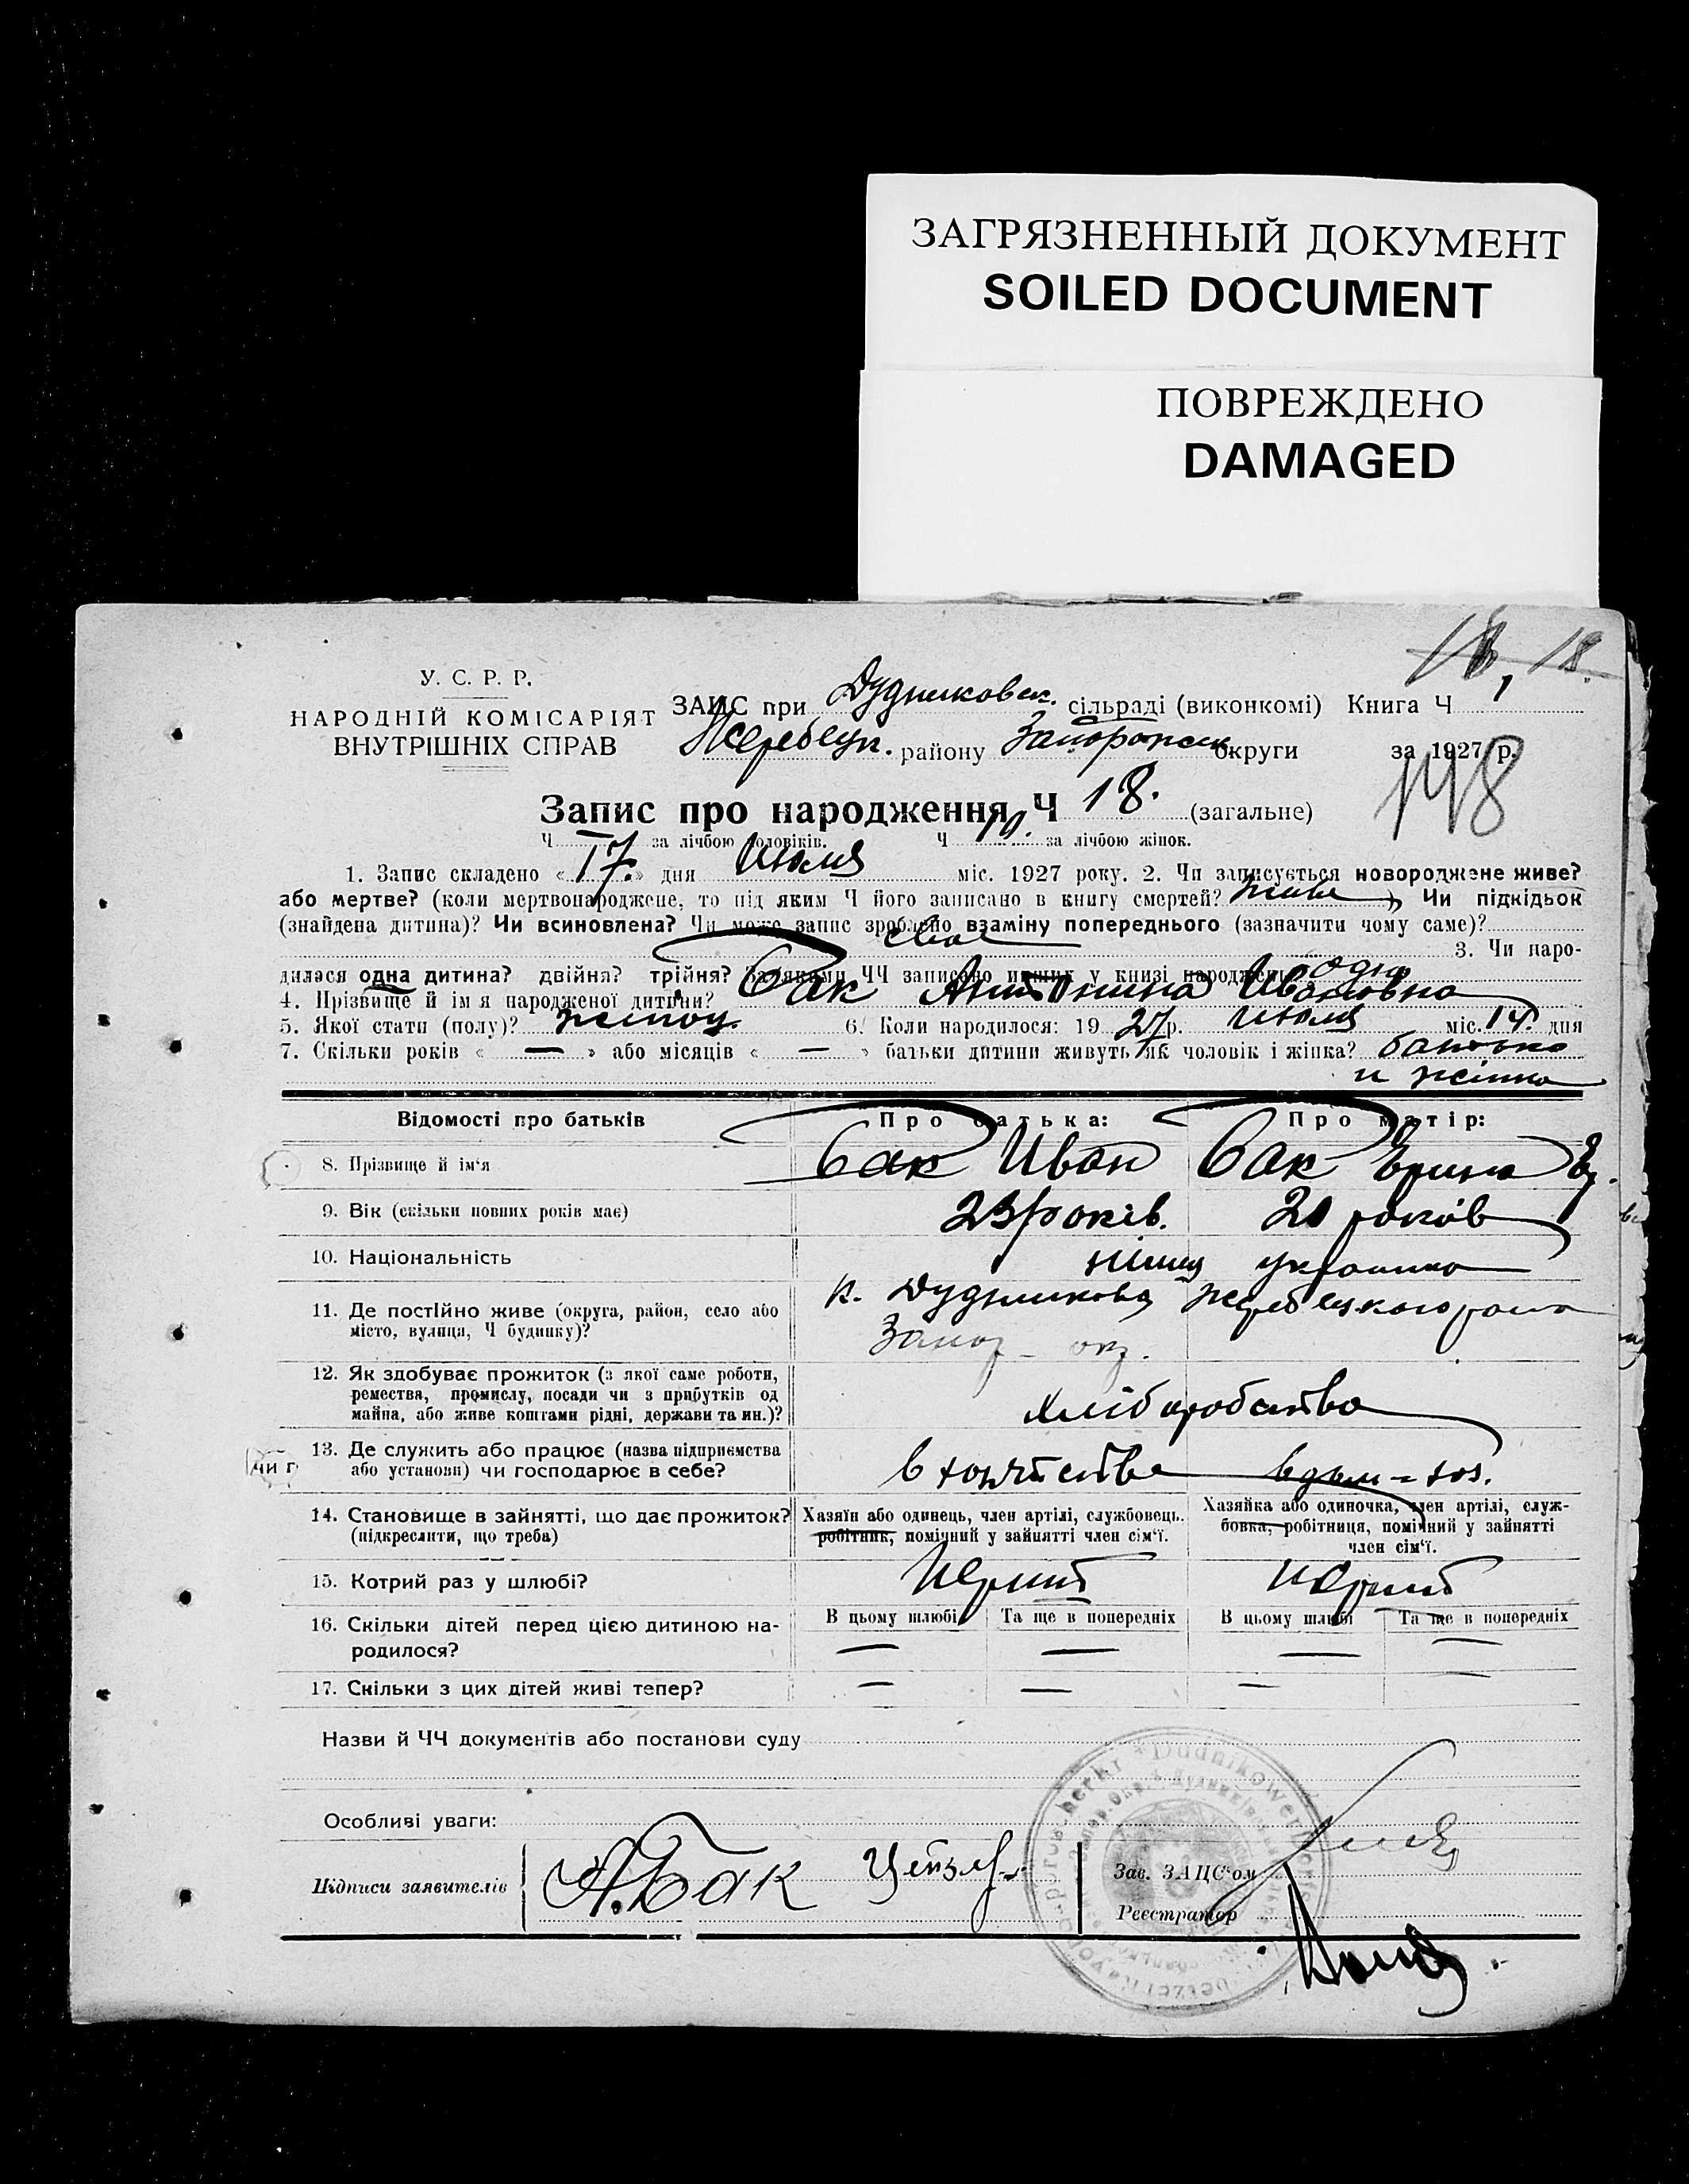 ЗАГРЯЗНЕННЫЙ ДОКУМЕНТ
SOILED DOCUMENT
ПОВРЕЖДЕНО
DAMAGED
18, 18.
У. С. Р. Р.
НАРОДНІЙ КОМІСАРІЯТ
ВНУТРІШНІХ СПРАВ
ЗАЦС при Дудниковск. сільраді (виконкомі) Книга Ч 1
Жеребецк. району Запорожск. округи за 1927 р.
148
Запис про народження Ч 18. (загальне)
Ч за лічбою чоловіків. Ч 10. за лічбою жінок.
1. Запис складено « 17. » дня Июля міс. 1927 року. 2. Чи записується новороджене живе?
або мертве? (коли мертвонароджене, то під яким Ч його записано в книгу смертей? живе ) Чи підкідьок
(знайдена дитина)? Чи всиновлена? Чи може запис зроблено взаміну попереднього (зазначити чому саме)?
3. Чи наро-
дилася одна дитина? двійня? трійня? За якими ЧЧ записано инших у книзі народжень одна
4. Прізвище й ім'я народженої дитини? Бак Антонина Ивановна
5. Якої стати (полу)? жіноч. 6. Коли народилося: 19 27 р. Июля міс. 14. дня
7. Скільки років « — » або місяців « — » батьки дитини живуть як чоловік і жінка? батько
и жінка
Відомості про батьків Про батька: Про матір:
8. Прізвище й ім'я Бак Иван Бак Ерина Ег.
9. Вік (скільки повних років має) 23 років. 20 років
10. Національність німец украинка
11. Де постійно живе (округа, район, село або місто, вулиця, Ч будинку)? к. Дудникова Жеребецкого рона
Запор- окр.
12. Як здобуває прожиток (з якої саме роботи,
ремества, промислу, посади чи з прибутків од
майна, або живе коштами рідні, держави та ин.)? хлібиробство
13. Де служить або працює (назва підприємства
або установи) чи господарює в себе?
чи г
14. Становище в зайнятті, що дає прожиток?
(підкреслити, що треба)
Хазяїн або одинець, член артілі, службовець.
робітник, помічний у зайнятті член сім'ї.
Хазяйка або одиночка, член артілі, служ-
бовка, робітниця, помічний у зайнятті
член сім'ї.
15. Котрий раз у шлюбі? Перший Перший
16. Скільки дітей перед цією дитиною на-
родилося?
В цьому шлюбі Та ще в попередніх В цьому шлюбі Та ще в попередніх
— — — —
17. Скільки з цих дітей живі тепер? — — — —
Назви й ЧЧ документів або постанови суду
Особливі уваги:
Підписи заявителів А. Бак
Зав. ЗАЦС'ом
Реєстратор